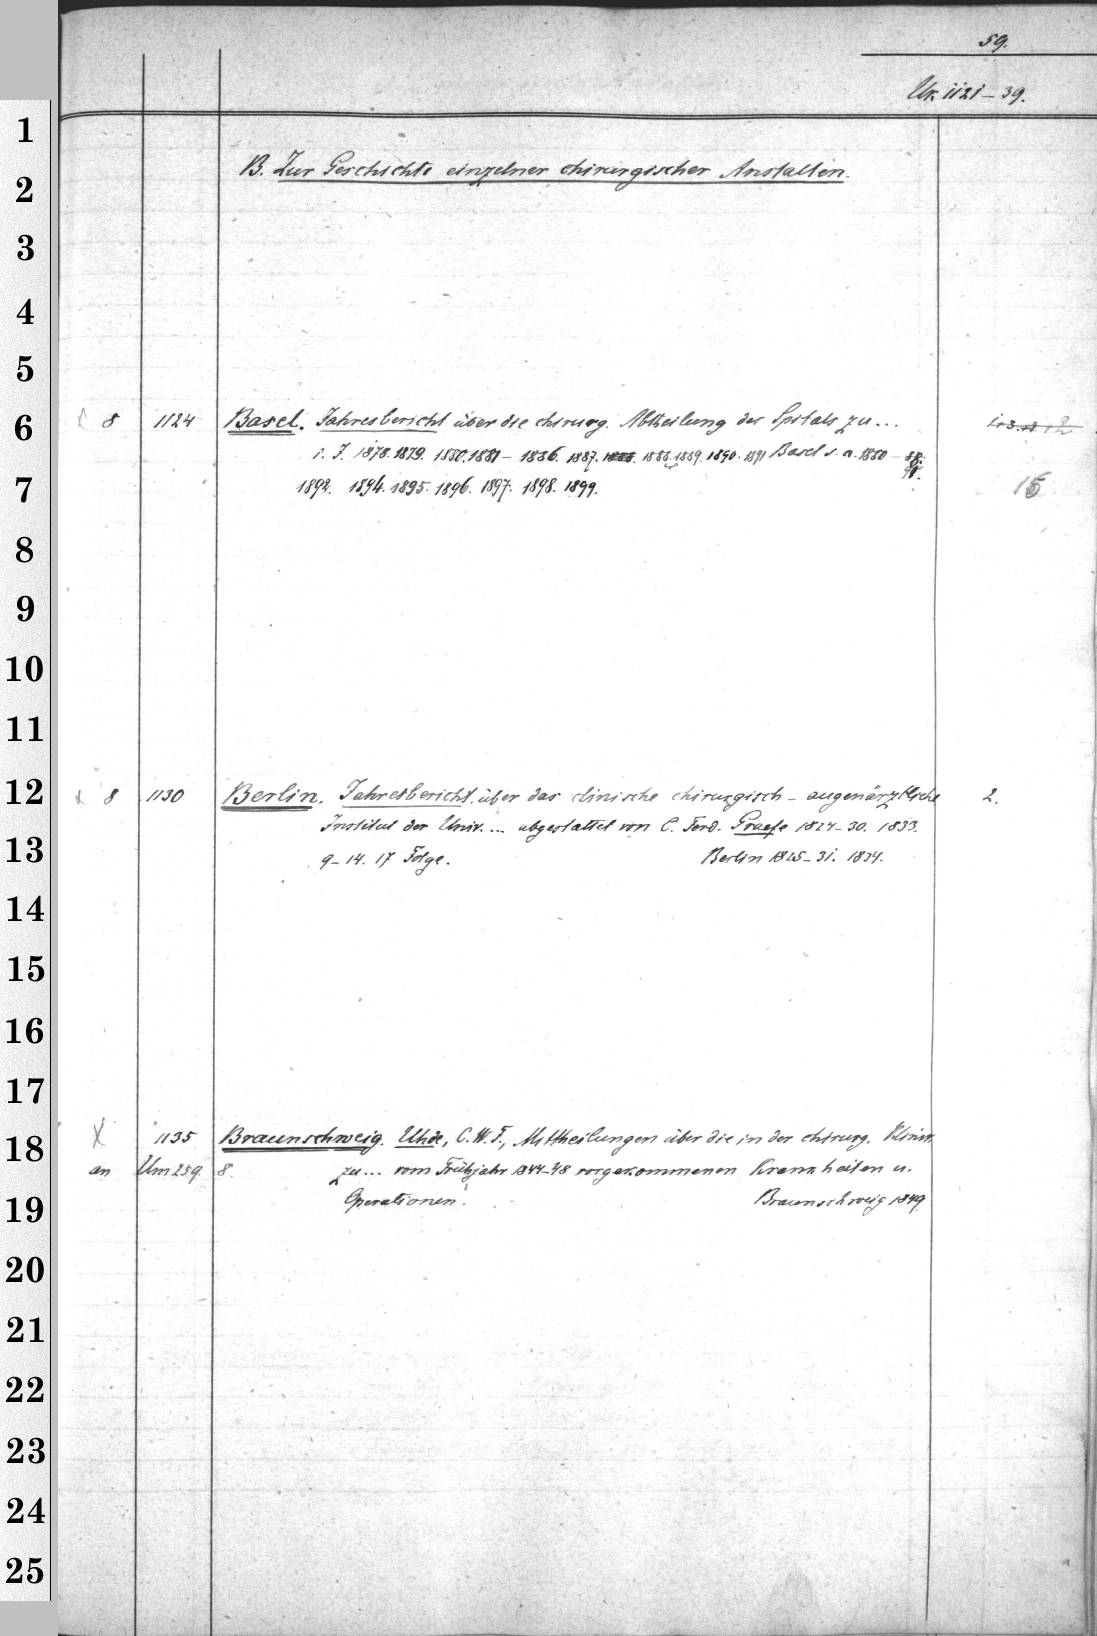 59.
Uk 1121-39.
1
B. Zur Geschichte einzelner chirurgischer Anstalten.
2
3
4
5
6 8 1124 Basel. Jahresbericht über die chirurg. Abtheilung des Spitals zu...
i. J. 1878. 1879. 1880. 1881-1886. 1887. 1888. 1889. 1890. 1891 Basel s. a. 1880-
7 1892. 1894. 1895. 1896. 1897. 1898. 1899. 15
8
9
10
11
12 x 8 1130 Berlin. Jahresbericht über das clinische chirurgisch-augenärztliche 2.
Institut der Univ.... abgestattet von C. Ferd. Graefe 1824-30. 1833.
13 9-14. 17 Folge. Berlin 1825-31. 1834.
14
15
16
17
18 X 1135 Braunschweig. Uhde, C. W. F., Mittheilungen über die in der chirurg. Klinik
an Um 259 8. zu... vom Frühjahr 1844-48 vorgekommenen Krankheiten u.
19 Operationen. Braunschweig 1849
20
21
22
23
24
25